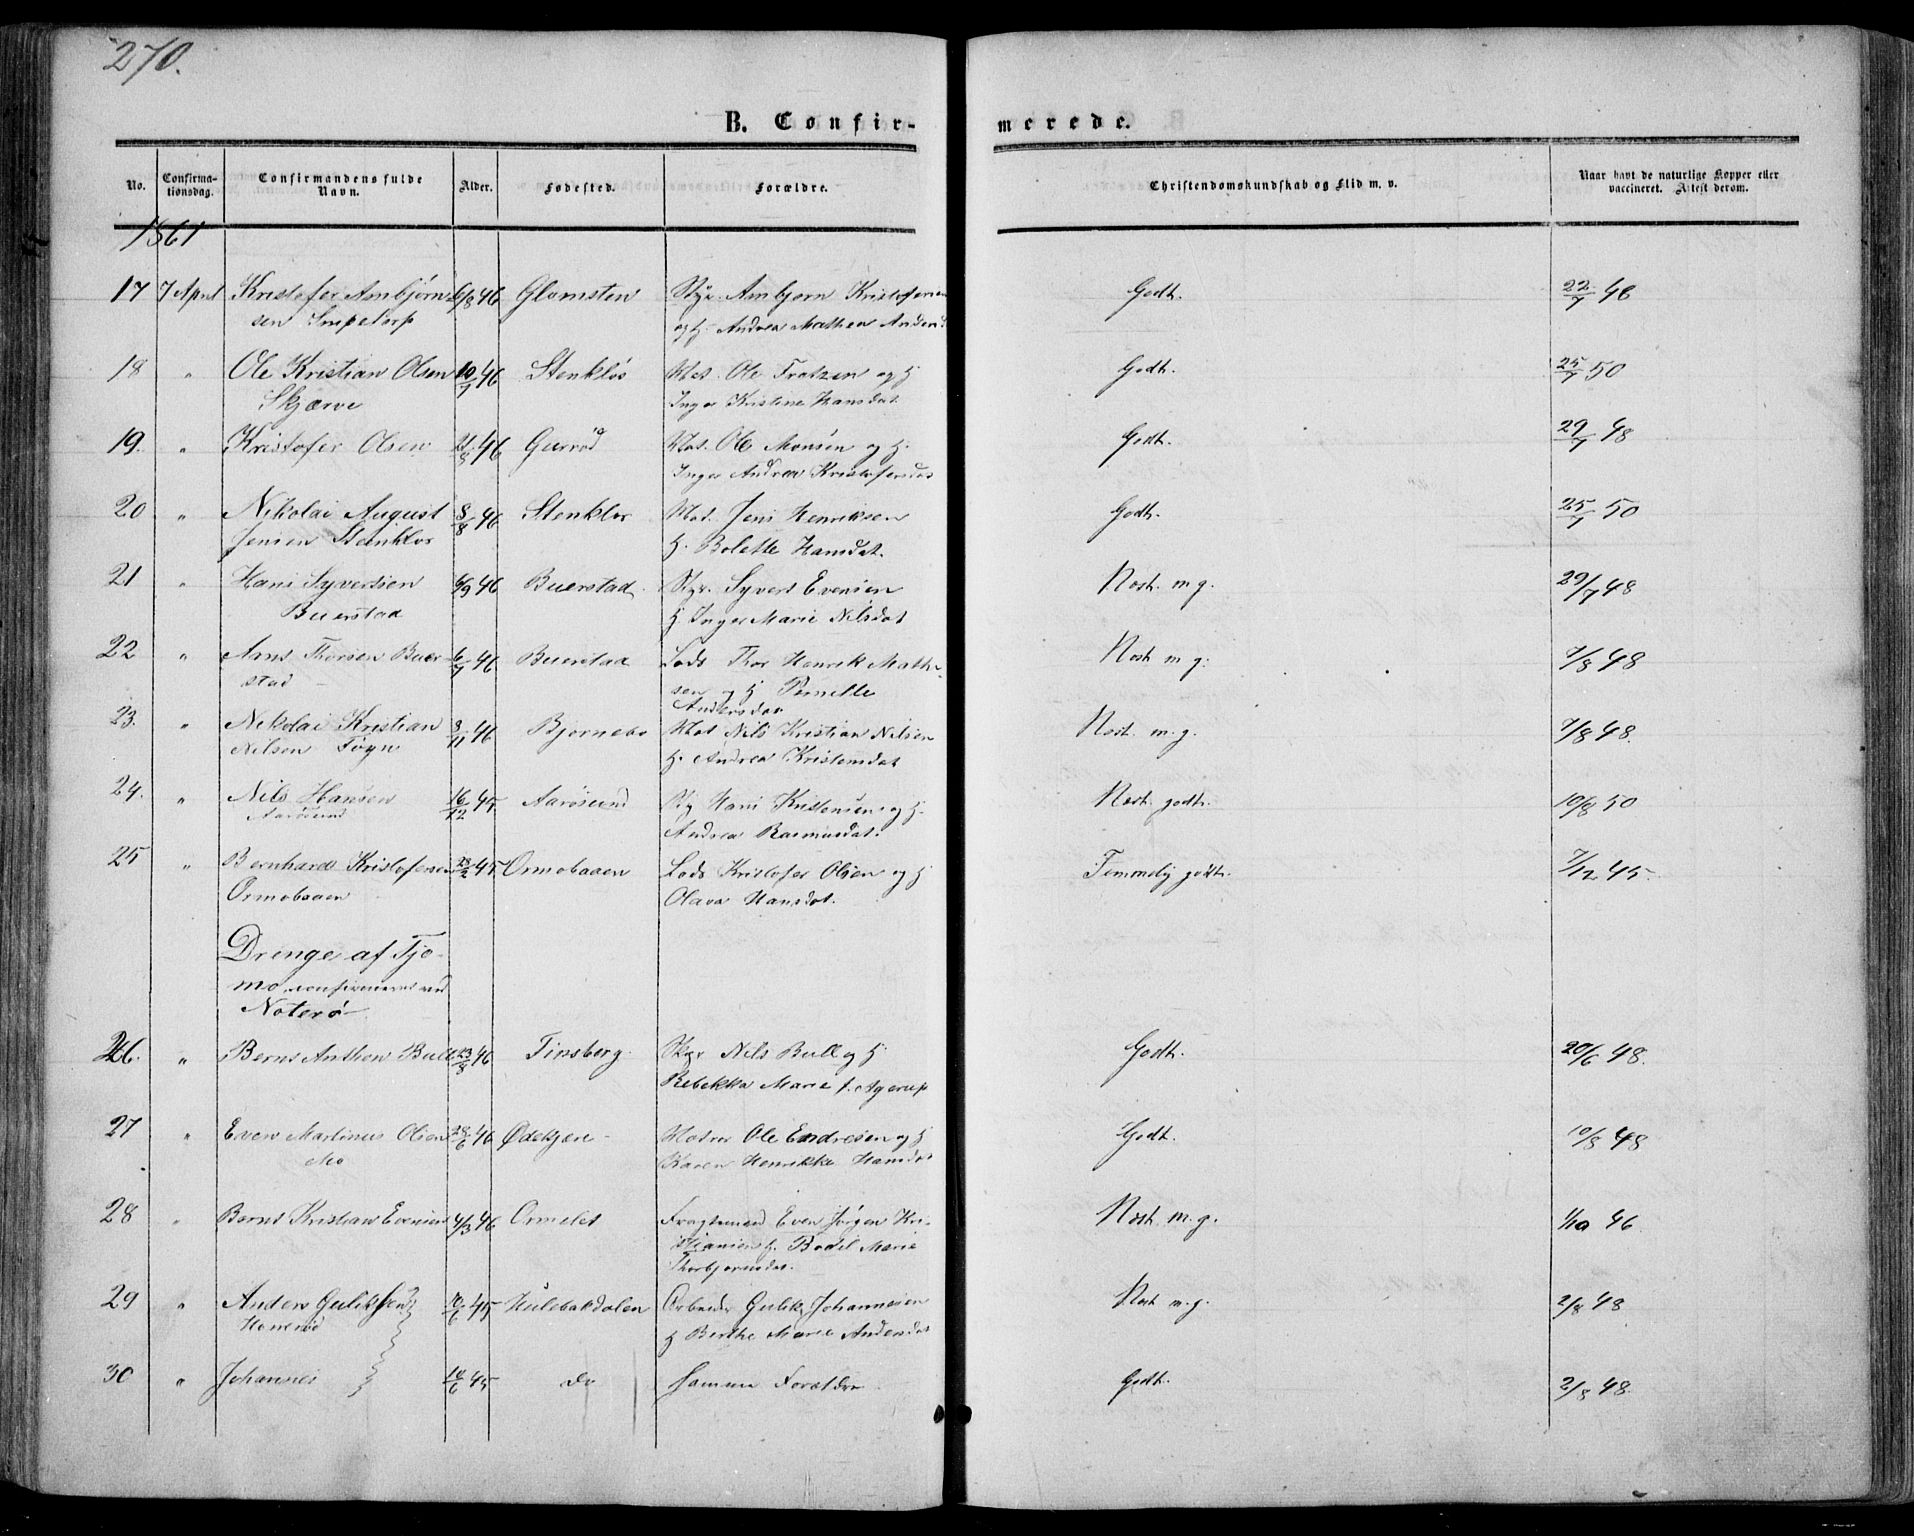 270.
B. Confir-
merede.
No.
Confirma-
tionsdag.
Confirmandens fulde
Navn.
Alder.
Fødested.
Forældre.
Christendomskundskab og Flid m. v.
Naar havt de naturlige Kopper eller
vaccineret. Attest derom.
1861
17 7 April Kristofer Ambjørn- 6/8 46 Glomsten Ambjørn Kristofersen Godt. 22/7 46
sen og H. Andrea Mathea
18 " Ole Kristian Olsen 10/7 46 Stenkløs Mat. Ole Frotzen og H Godt. 25/7 50
Skjærve Inger Kristine Hansdat.
19. " Kristofer Olsen 46 Mat. Ole Monsen og H. Godt. 29/7 48
Inger Andrea Kristofersdat
20 " Nikolai August 8/8 46 Stenklos Mat. Jens Henriksen Godt. 25/7 50
Jensen Stenklos H. Bolette Hansdat.
21 " Hans Syvertsen 6/9 46 Buerstad. Styr. Syvert Evensen Næst. m. g. 29/7 48
Buerstad H Inger Marie Nilsdat
22 " Hans Thorsen Buer- 6/7 46 Buerstad Lods Thor Henrik Math- Næst m g. 9/8 48
stad sen og H Pernille
Andersdat
23. " Nikolai Kristian 8/11 46 Bjørnebo Mat Nils Kristian Nilsen Næst. m. g. 9/8 48.
Nilsen Føyn H. Andrea Kristensdat
24. " Nils Hansen 16/12 45 Aarøsund Hans Kristensen og H. Næst. godt. 10/8 50
Aarøsund Andrea Rasmusdat.
25 " Bernhard Kristofersen 45 Ormobaaen Lods Kristofer Olsen og H Temmelig godt. 7/12 45.
Ormobaaen Olava Hansdat.
Drenge af Tjø-
mo, confirmeret ved
Noterø
26. " Berns Anthon Bull 23/8 46 Tønsberg. Nils Bull og H Godt. 20/6 48.
Rebekka Marie f. Agerup
27 " Even Martinus Olsen 28/6 46 Ødekjære Matros Ole Endresen og H Godt. 10/8 48
Mo Karen Henrikke Hansdat
28 " Bernt Kristian Evensen 4/3 46 Ormelet Fragtemand Even Jørgen Kri- Næst. m. g. 1/10 46
stiansen H. Bodil Marie
Thorbjørnsdat.
29 " Anders Guliksen 10/6 45 Hulebakdalen Arbeider Gulik Johannesen Næst m. g. 2/8 48
H Berthe Marie Andersdat
30 " Johannes 10/6 45 do Samme Forældre Godt. 2/8 48.